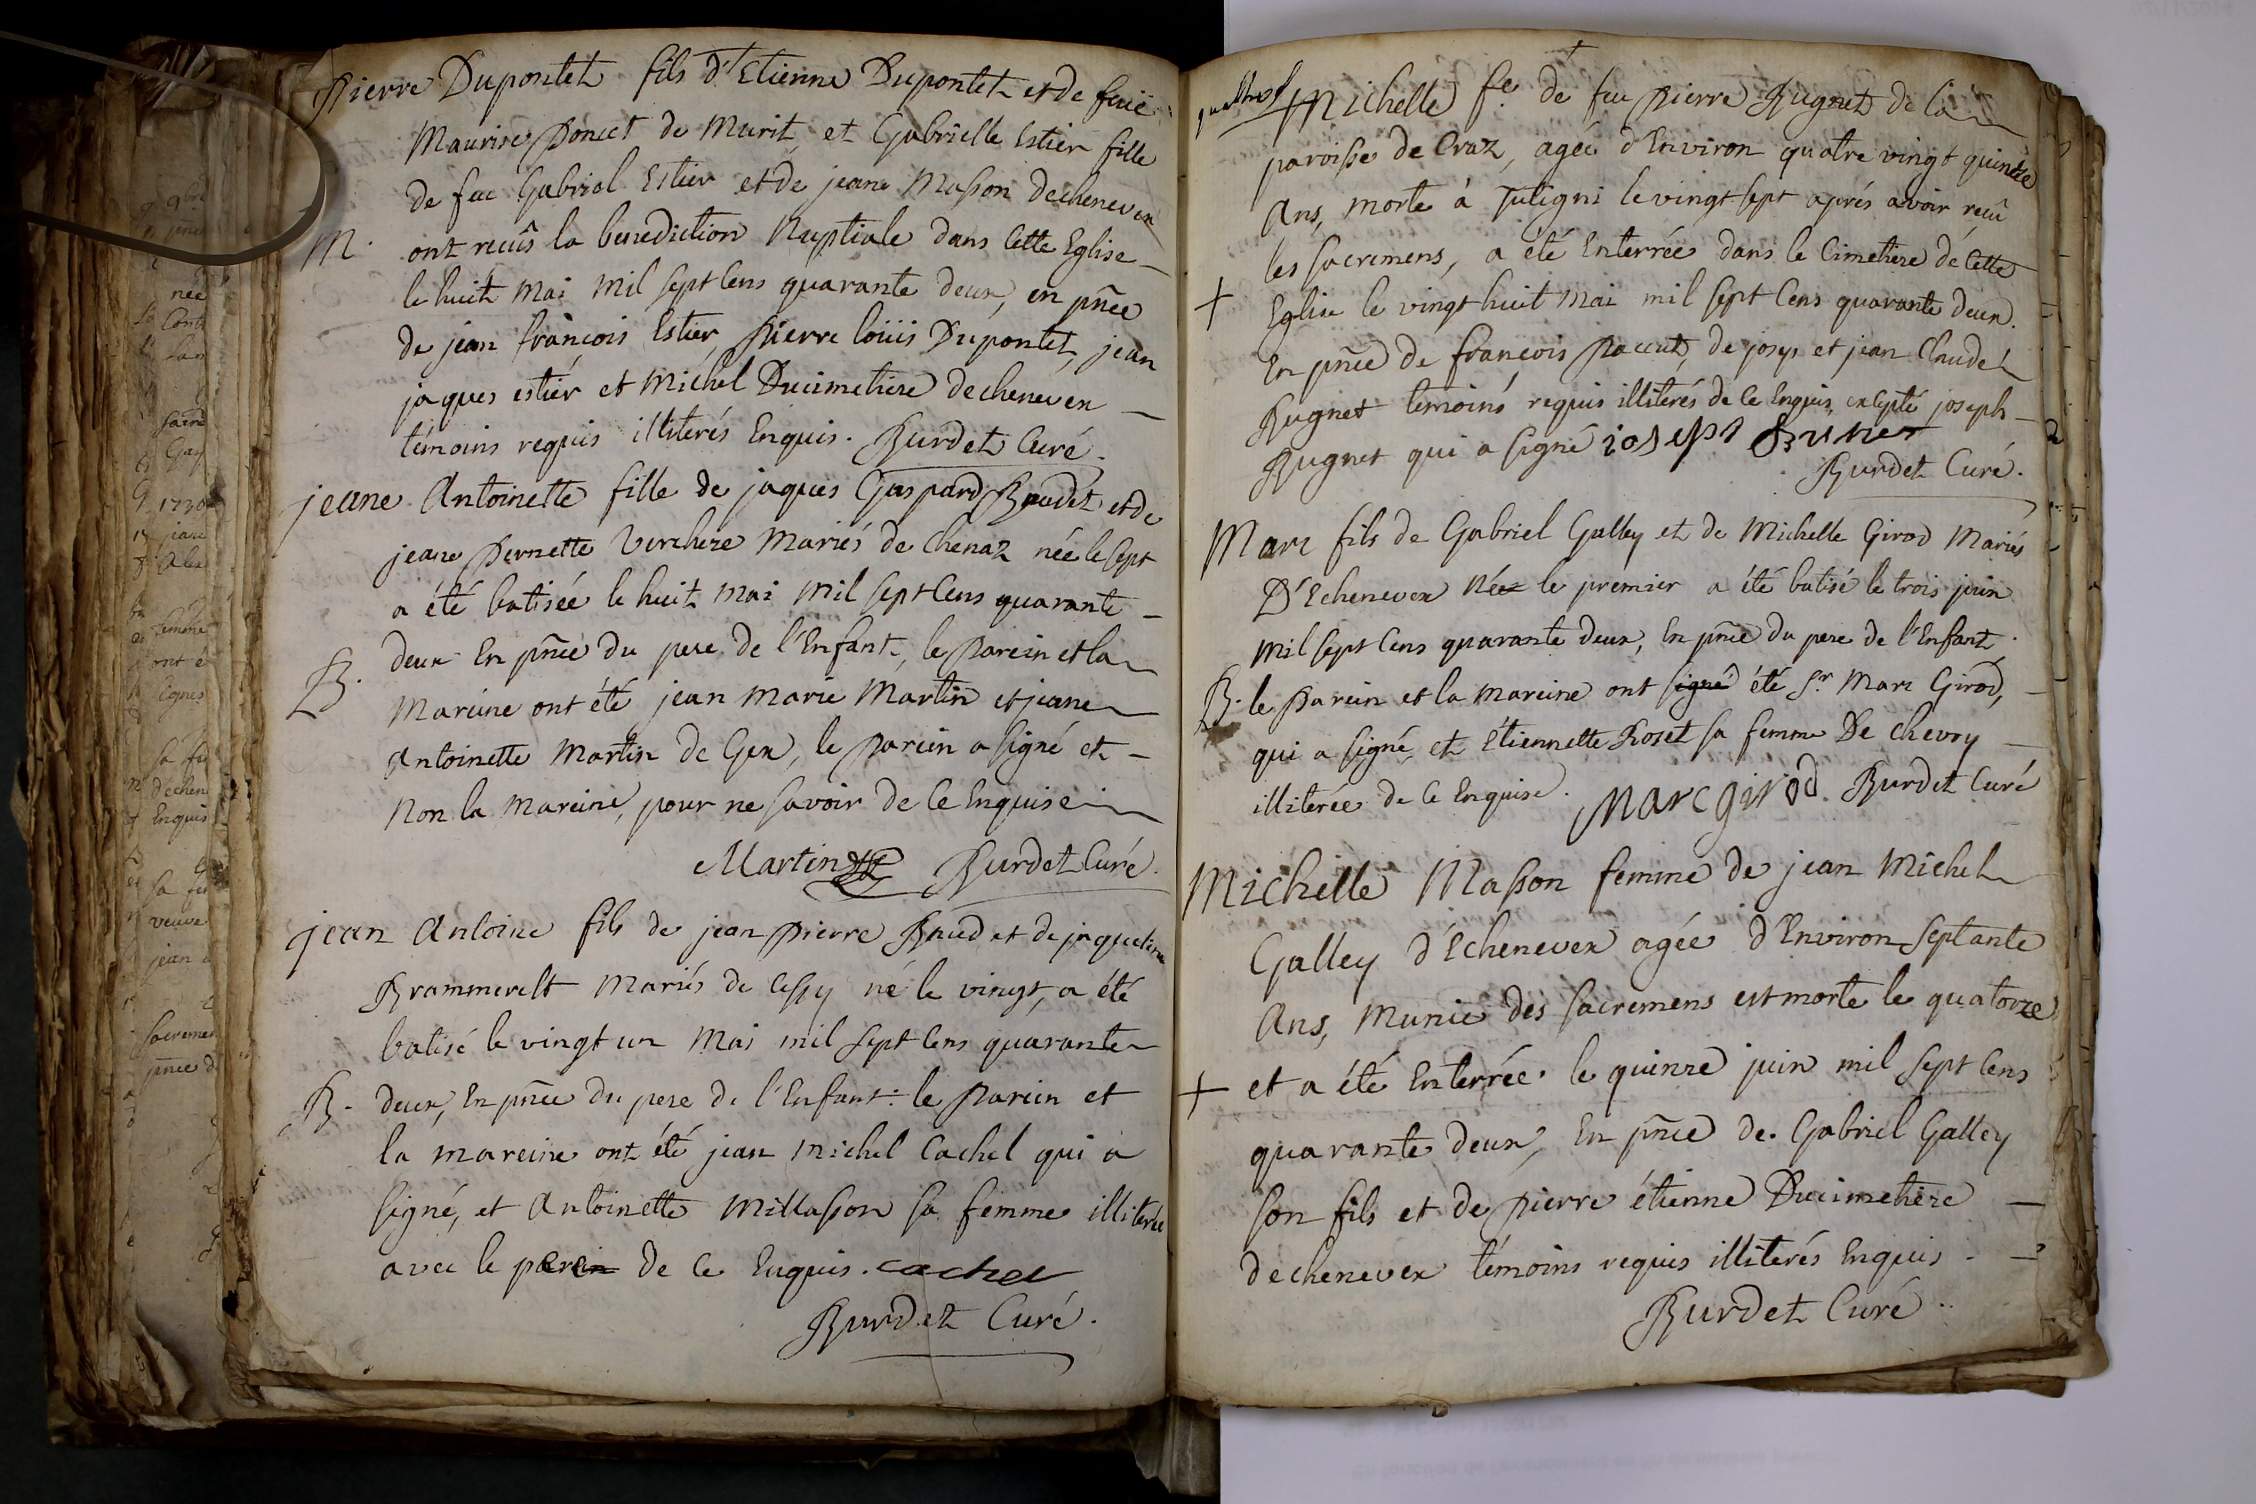 Pierre Dupontet fils d'Etienne Dupontet et de feüe
Maurise Poncet de Murit, et Gabrielle Estier fille
de feu Gabriel Estier et de jeane Masson dechenevex
M. ont reçûs la benediction Nuptiale dans Cette Eglise
le huit Mai mil sept Cens quarante deux, en pñce
de jean françois Estier, Pierre loüis Dupontet, jean
jaques estier et Michel Ducimetiere dechenevex
témoins requis illiterés Enquis. Burdet Curé.
jeane Antoinette fille de jaques Gaspard Baudet et de
jeane Pernette Verchere Mariés de Chenaz née le sept
a été batisée le huit Mai mil sept Cens quarante
B. deux En pñce du pere de l'Enfant, le Parein et la
Mareine ont été jean Marie Martin et jeane
Antoinette Martin de Gex, le Parein a signé et
Non la mareine, pour ne savoir de Ce Enquise
Martin Burdet Curé.
jean Antoine fils de jean Pierre Baud et de jaqueline
Brammerelt Mariés de Cessy né le vingt, a été
batisé le vingt un Mai mil sept Cens quarante
B. deux, En pñce du pere de l'Enfant: le Parein et
la mareine ont été jean Michel Cachel qui a
signé, et Antoinette Millasson sa femme illiterée
avec le de Ce Enquis. cachel
Burdet Curé.
Michelle fe. de feu Pierre Bugnet de la
paroisse de Craz, agée d'Environ quatre vingt quinze
Ans, morte à Tutigni le vingt sept aprés avoir reçû
les sacremens, a été Enterrée dans le Cimetiere de Cette
+ Eglise le vingt huit Mai mil sept Cens quarante deux.
En pñce de françois Paccut, de josps et jean Claude
Bugnet temoins requis illiterés de Ce Enquis, excepté joseph
Bugnet qui a signé ioseph
Burdet Curé.
Marc fils de Gabriel Galley et de Michelle Girod Mariés
D'Echenevex Né le premier a été batisé le trois juin
mil sept Cens quarante deux, En pñce du pere de l'Enfant.
B. le Parein et la mareine ont signé été Sr Marc Girod,
qui a signé, et Etiennette Roset sa femme De Chevry
illiterée de Ce Enquise. Marc girod Burdet Curé
Michelle Masson femme de jean Michel
Galley d'Echenevex agée d'Environ septante
Ans, Munie des sacremens est morte le quatorze
+ et a été Enterrée le quinze juin mil sept Cens
quarante deux, En pñce de Gabriel Galley
son fils et de Pierre étienne Ducimetiere
dechenevex témoins requis illiterés Enquis.
Burdet Curé